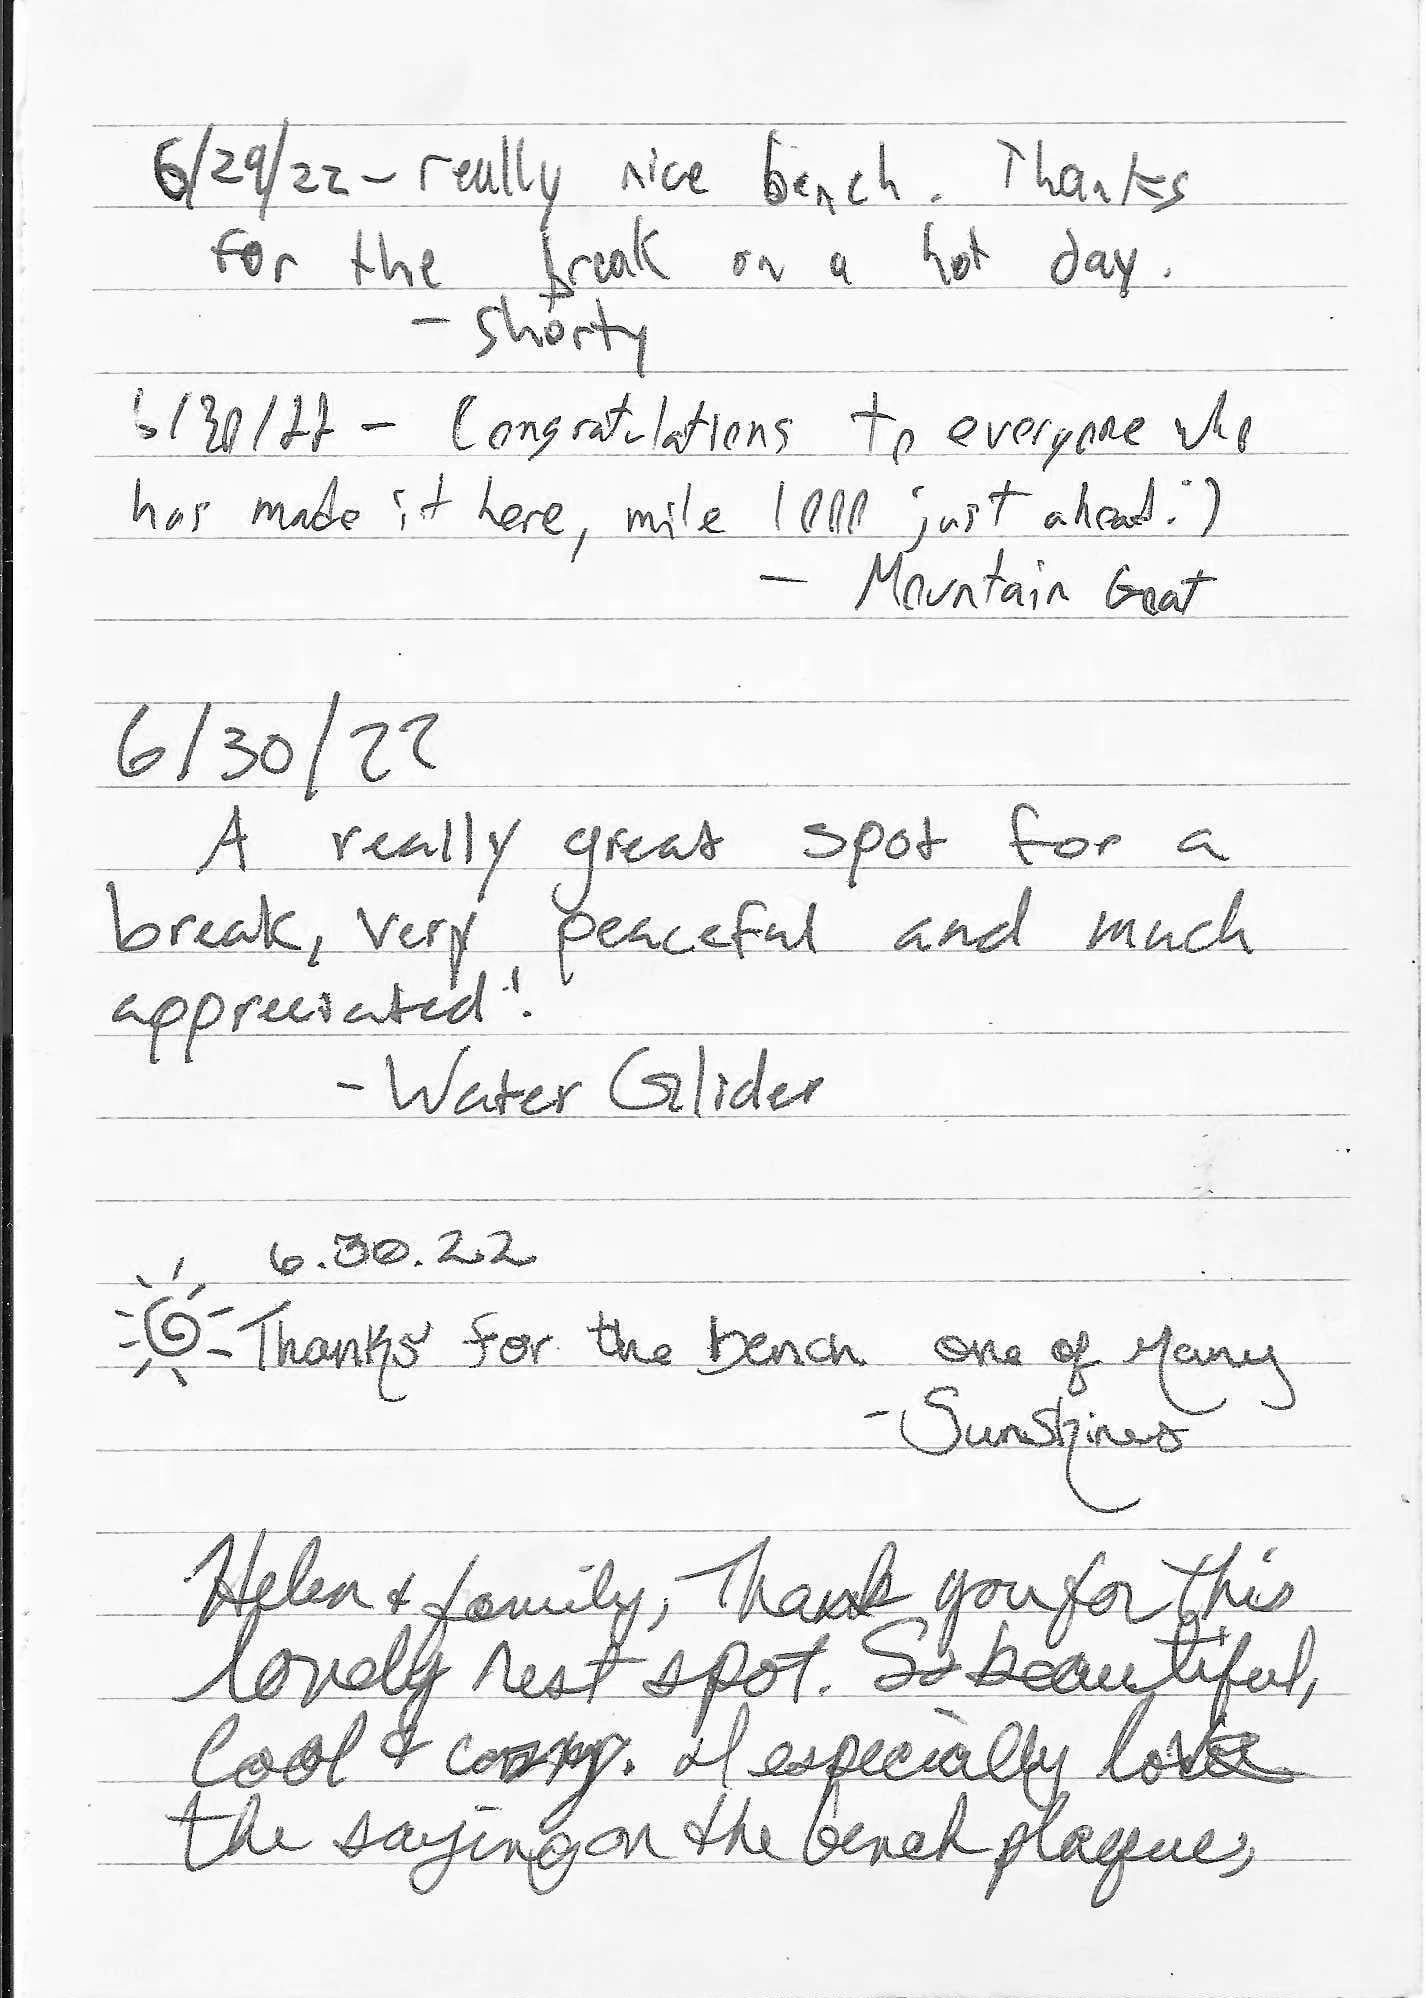 6/29/22 - really nice bench. Thanks
for the break on a hot day.
- Shorty
6/30/22 - Congratulations to everyone who
has made it here, mile 1000 just ahead :)
- Mountain Goat
6/30/22
A really great spot for a
break, very peaceful and much
appreciated!
- Water Glider
6.30.22
Thanks for the bench one of Many
- Sunshines
Helen & family, Thank you for this
lovely rest spot. So beautiful,
Cool & cozy. I especially love
the saying on the bench plaque,